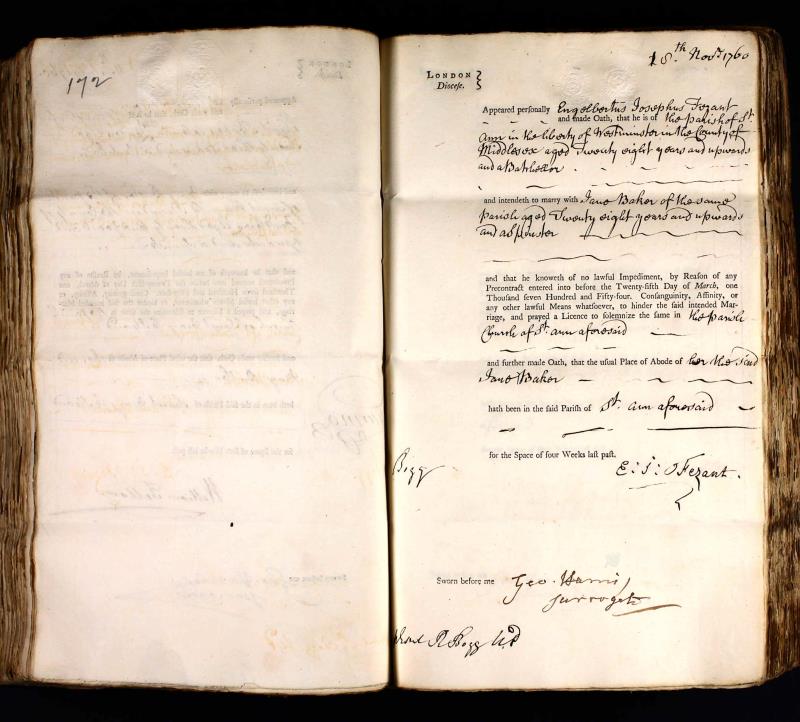 172
18.th Nov.r 1760
LONDON
Diocese.
Appeared personally Engelbertus Josephus Fezant
and made Oath, that he is of the parish of St.
Ann in the liberty of Westminster in the County of
Middlesex aged Twenty eight years and upwards
and a Batchelor
and intendeth to marry with Jane Baker of the same
parish aged Twenty eight years and upwards
and a Spinster
and that he knoweth of no lawful Impediment, by Reason of any
Precontract entered into before the Twenty-fifth Day of March, one
Thousand seven Hundred and Fifty-four. Consanguinity, Affinity, or
any other lawful Means whatsoever, to hinder the said intended Mar-
riage, and prayed a Licence to solemnize the same in the parish
Church of St. Ann aforesaid
and further made Oath, that the usual Place of Abode of her the said
Jane Baker
hath been in the said Parish of St. Ann aforesaid
for the Space of four Weeks last past.
Bogg
E: J: Fezant.
Sworn before me Geo. Harris
Surrogate
R Bogg